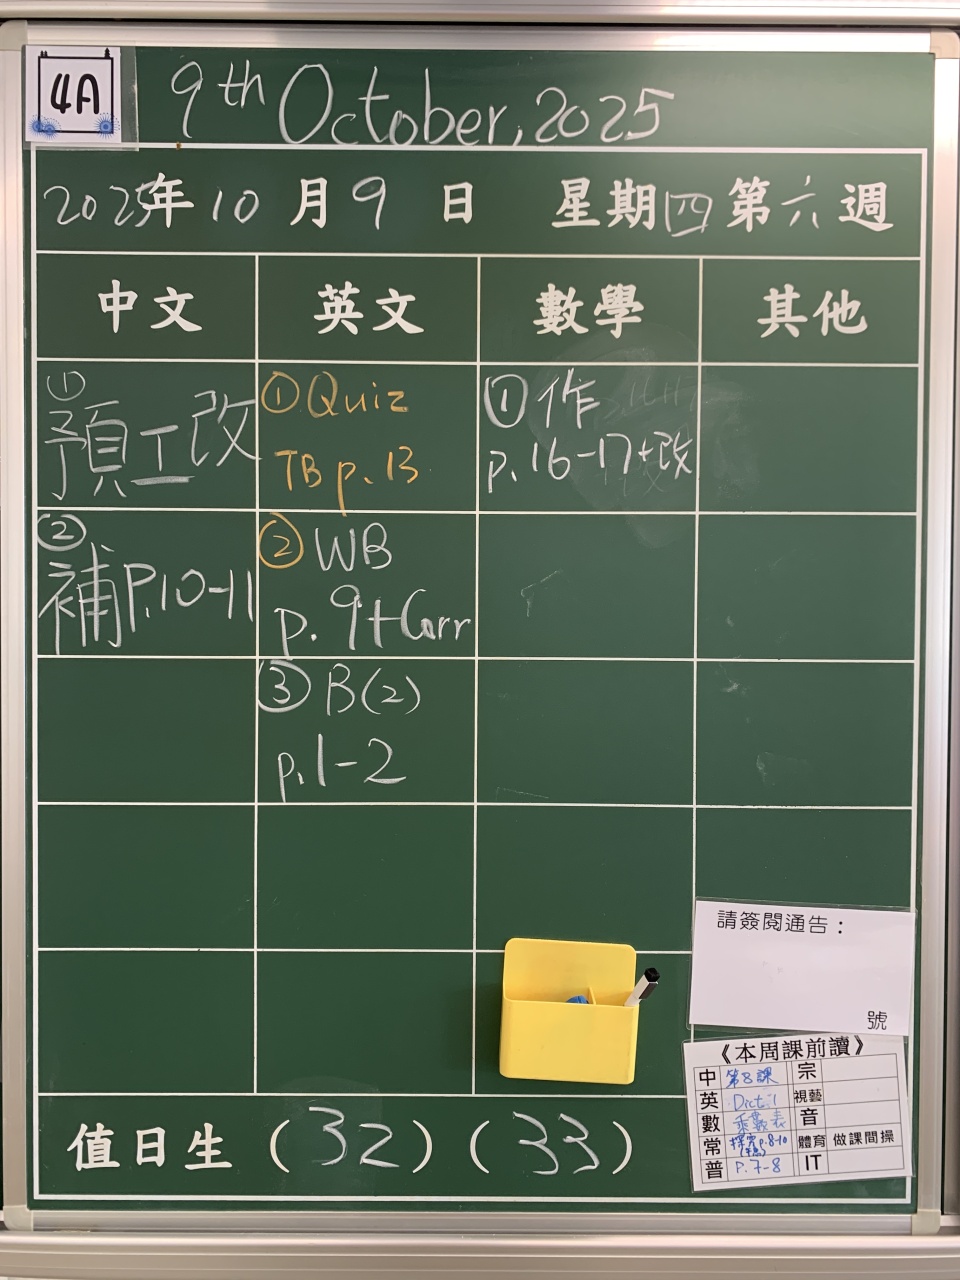 4A
9th October, 2025
2025年10月9日 星期四第六週
中文 英文 數學 其他
① 預工改
① Quiz
TB p.13
① 作
p.16-17+改
② 補P.10-11
② WB
p.9+Corr
③ B(2)
p.1-2
請簽閱通告：
號
《本周課前讀》
中 第8課 宗
英 Dict:1 視藝
數 乘數表 音
常 探究p.8-10 體育 做課間操
普 P.7-8 IT
值日生 (32) (33)